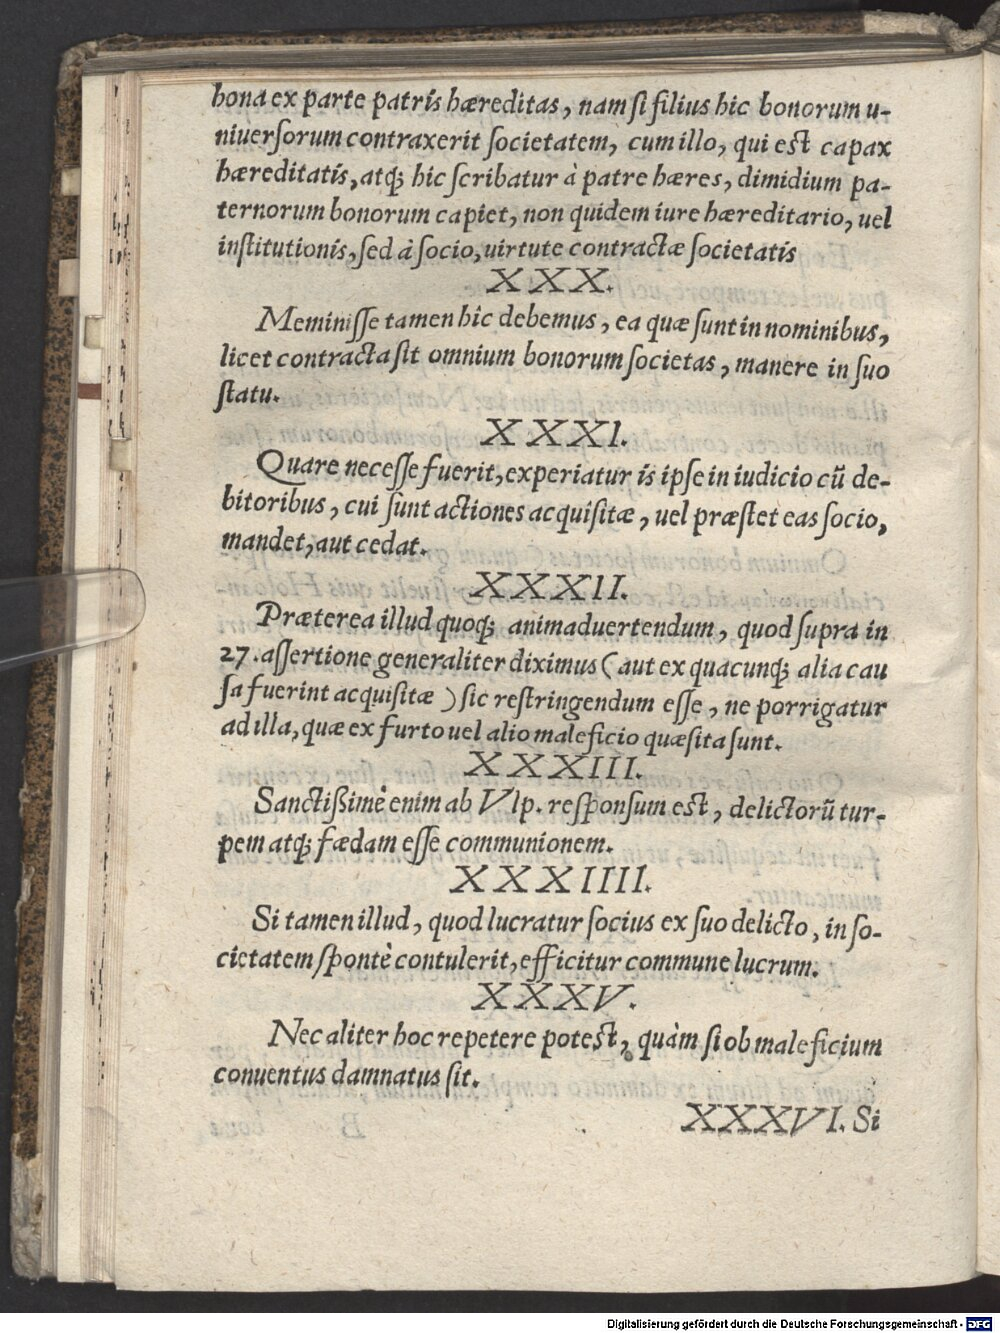 bona ex parte patris hæreditas, nam si filius hic bonorum u-
niuersorum contraxerit societatem, cum illo, qui est capax
hæreditatis, atq; hic scribatur à patre hæres, dimidium pa-
ternorum bonorum capiet, non quidem iure hæreditario, uel
institutionis, sed à socio, uirtute contractæ societatis
XXX.
Meminisse tamen hic debemus, ea quæ sunt in nominibus,
licet contracta sit omnium bonorum societas, manere in suo
statu.
XXXI.
Quare necesse fuerit, experiatur is ipse in iudicio cū de-
bitoribus, cui sunt actiones acquisitæ, uel præstet eas socio,
mandet, aut cedat.
XXXII.
Præterea illud quoq; animaduertendum, quod supra in
27. assertione generaliter diximus (aut ex quacunq; alia cau
sa fuerint acquisitæ) sic restringendum esse, ne porrigatur
ad illa, quæ ex furto uel alio maleficio quæsita sunt.
XXXIII.
Sanctißimè enim ab Vlp. responsum est, delictorū tur-
pem atq; fædam esse communionem.
XXXIIII.
Si tamen illud, quod lucratur socius ex suo delicto, in so-
cietatem spontè contulerit, efficitur commune lucrum.
XXXV.
Nec aliter hoc repetere potest, quàm si ob maleficium
conuentus damnatus sit.
XXXVI. Si
Digitalisierung gefördert durch die Deutsche Forschungsgemeinschaft - DFG